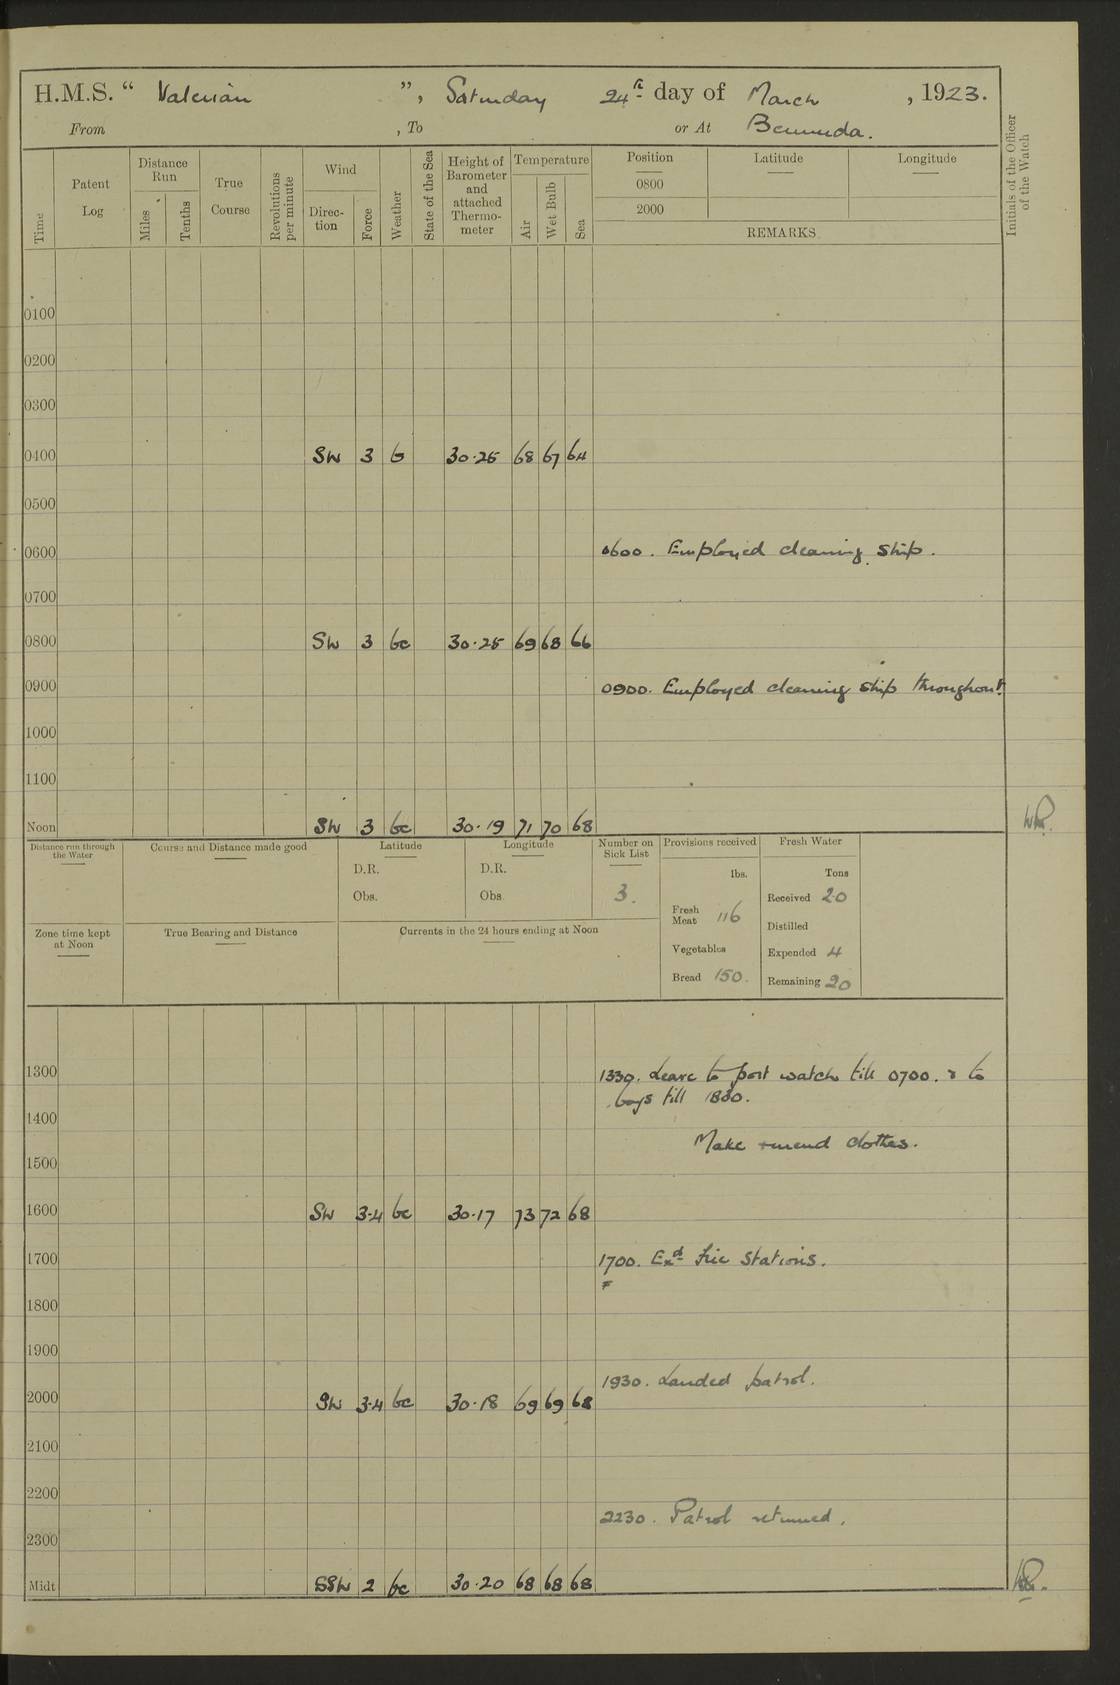 H.M.S. “ Valerian ”, Saturday 24th day of March , 1923.
From , To or At Bermuda.
Time
Patent Log
Distance Run
Miles
Tenths
True Course
Revolutions per minute
Wind
Direc-tion
Force
Weather
State of the Sea
Height of Barometer and attached Thermo-meter
Temperature
Air
Wet Bulb
Sea
Position Latitude Longitude
0800
2000
REMARKS
Initials of the Officer of the Watch
0100
0200
0300
0400 SW 3 b 30.25 68 67 64
0500
0600 0600. Employed cleaning ship.
0700
0800 SW 3 bc 30.25 69 68 66
0900 0900. Employed cleaning ship throughout.
1000
1100
Noon SW 3 bc 30.19 71 70 68
Distance run through the Water
Course and Distance made good
Latitude
D.R.
Obs.
Longitude
D.R.
Obs
Number on Sick List
3.
Provisions received
lbs.
Fresh Meat 116
Vegetables
Bread 150.
Fresh Water
Tons
Received 20
Distilled
Expended 4
Remaining 20
Zone time kept at Noon
True Bearing and Distance
Currents in the 24 hours ending at Noon
1300 1330. Leave to port watch till 0700. & to
boys till 1830.
1400
Make & mend clothes.
1500
1600 SW 3.4 bc 30.17 73 72 68
1700 1700. Exd fire stations.
1800
1900
1930. Landed patrol.
2000 SW 3.4 bc 30.18 69 69 68
2100
2200
2230. Patrol returned.
2300
Midt SSW 2 bc 30.20 68 68 68